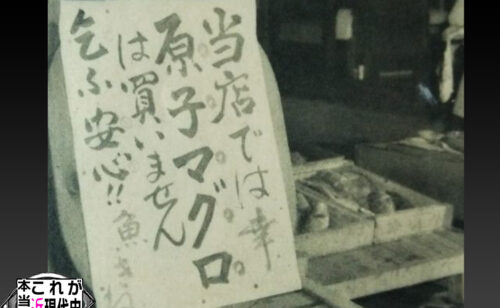 当店では幸
原子マグロ
は買いません
乞ふ安心!!
魚き
これが
本当
近現代史